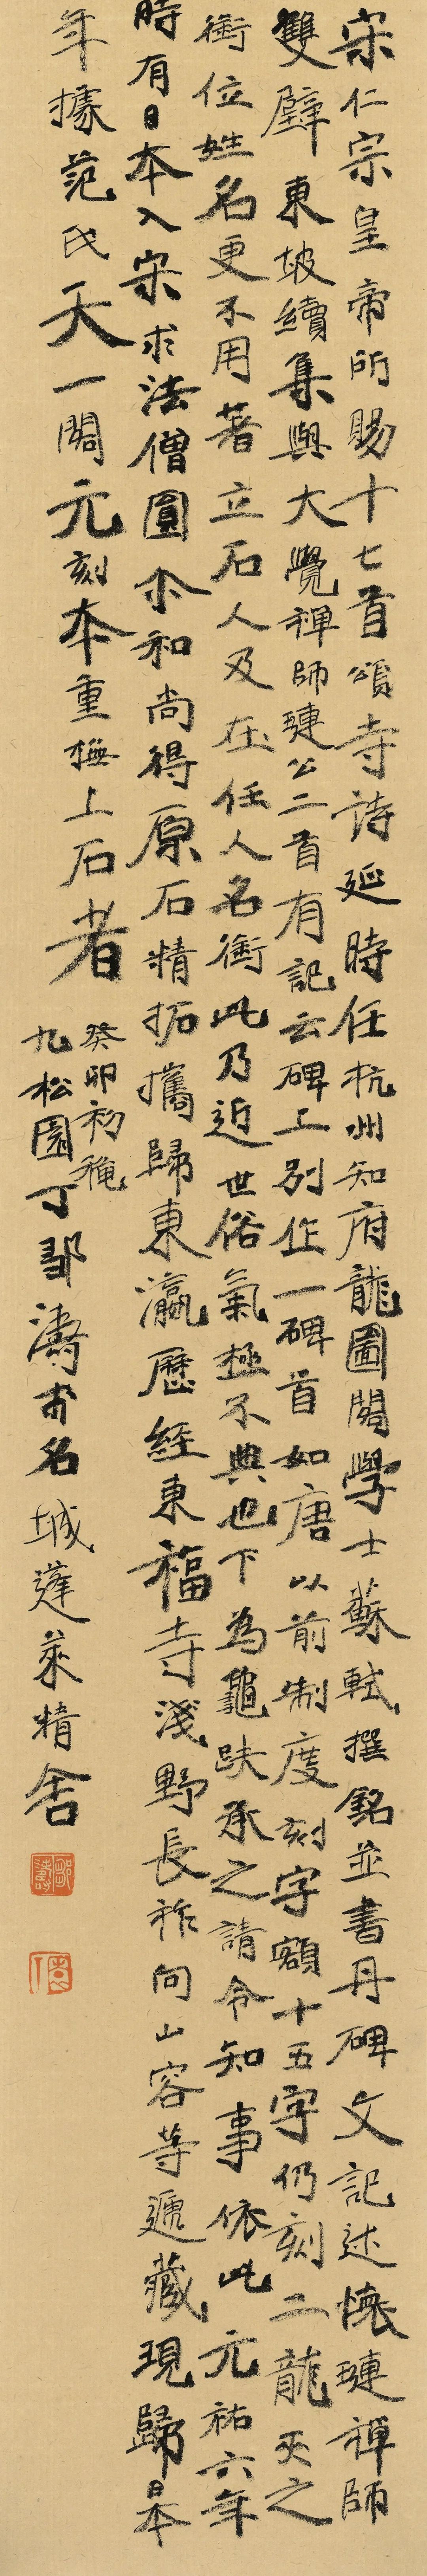 宋仁宗皇帝所賜十七首頌寺詩延時任杭州知府龍圖閣學士蘇軾撰銘並書丹碑文記述懷璉禪師
雙壁東坡續集與大覺禪師璉公二首有記云碑上別作一碑首如唐以前制度刻字額十五字仍刻二龍夾之
銜位姓名更不用著立石人及在任人名銜此乃近世俗氣極不典也下為龜趺承之請令知事依此元祐六年
時有日本入宋求法僧圓尒和尚得原石精拓攜歸東瀛歷經東福寺淺野長祚向山容等遞藏現歸日本
年據范氏天一閣元刻本重橅上石者
癸卯初穐
九松園丁鄒濤名城蓬萊精舍
鄒濤